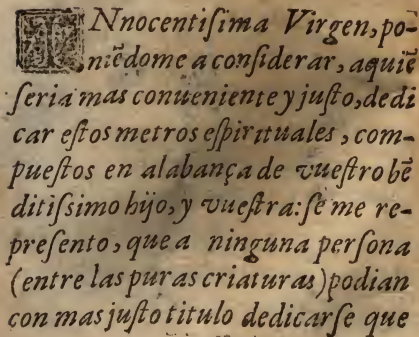 INnocentiſsima Virgen, po-
niẽdome a conſiderar, a quiẽ
ſeria mas conueniente y juſto, dedi
car eſtos metros eſpirituales, com-
pueſtos en alabança de vueſtro bẽ
ditiſsimo hijo, y vueſtra: ſe me re-
preſento, que a ninguna perſona
(entre las puras criaturas) podian
con mas juſto titulo dedicarſe que